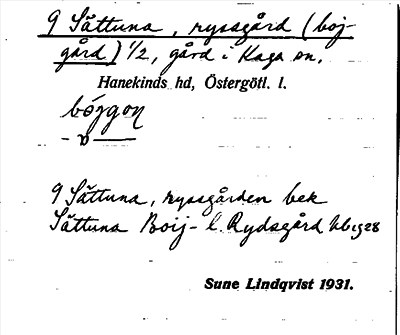 9 Sättuna, ryssgård (boj-
gård) 1/2, gård i Kaga sn.
Hanekinds hd, Östergötl. l.
bójgoɲ
- v -
9 Sättuna, ryssgården bek
Sättuna Boij- l. Rydsgård Kb 1528
Sune Lindqvist 1931.